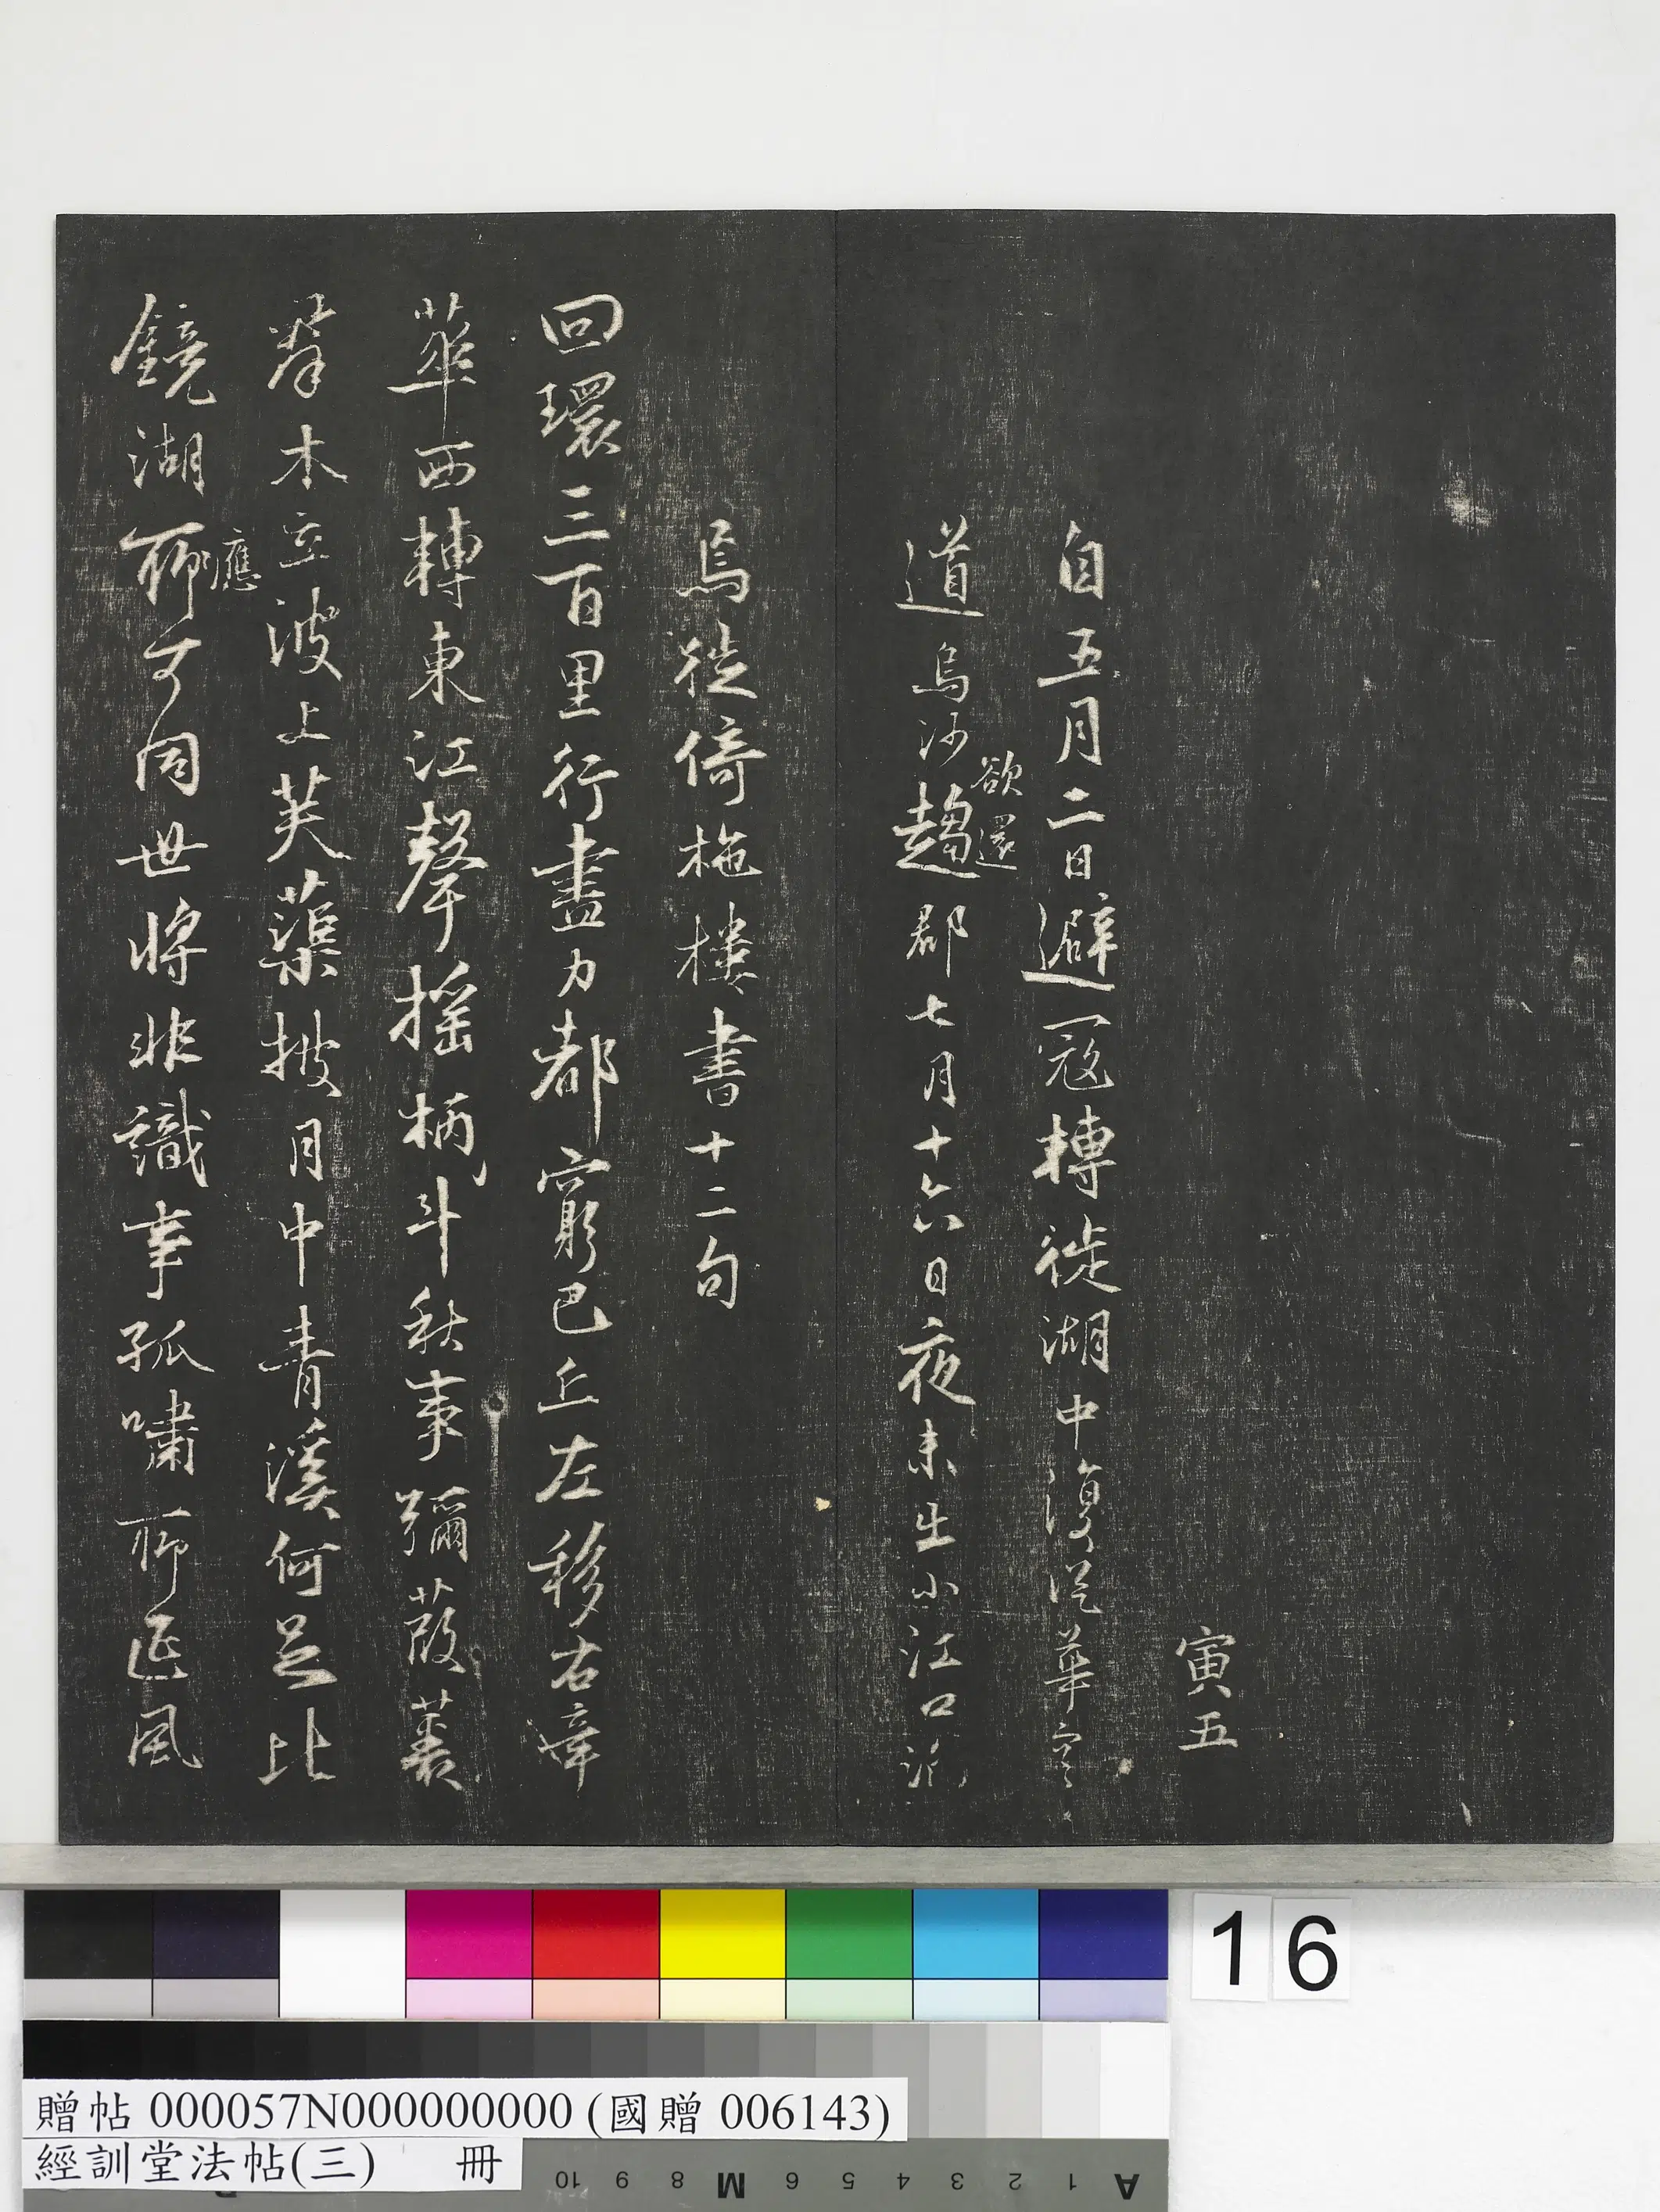 寅五
自五月二日避寇轉徙湖中復從華容
道烏沙趨郡七月十六日夜未出小江口
欲還
焉徙倚柂樓書十二句
回環三百里行盡力都窮巴丘左移右章
華西轉東江聲搖柄斗秋事彌葭叢
木立波上芙蕖披月中青溪何足比
鏡湖聊可同世將非識事孤嘯聊延風
應
16
贈帖 000057N000000000 (國贈 006143)
經訓堂法帖(三) 冊
10 9 8 M 6 5 4 3 2 1 A